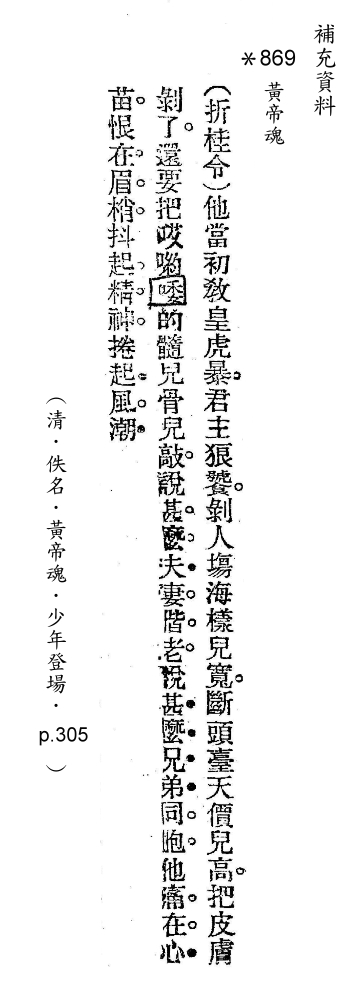 補充資料
*869
黃帝魂
（折桂令）他當初敎皇虎暴。君主狠饕。剝人塲海樣兒寬。斷頭臺天價兒高。把皮膚
剝了。還要把哎喲㖿的髓兒骨兒敲。說甚麼夫妻階老。說甚麼兄弟同胞。他痛在心
苗。恨在眉梢。抖起精神。捲起風潮。
（清．佚名．黃帝魂．少年登場．p.305）